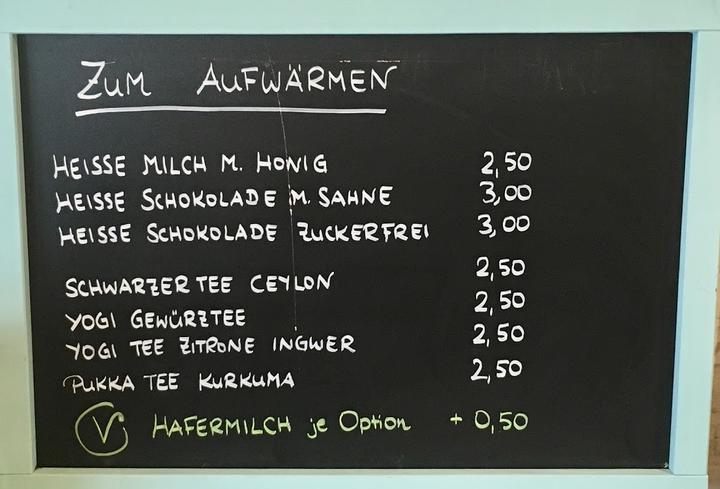 ZUM AUFWÄRMEN
HEISSE MILCH M. HONIG 2,50
HEISSE SCHOKOLADE M. SAHNE 3,00
HEISSE SCHOKOLADE ZUCKERFREI 3,00
SCHWARZER TEE CEYLON 2,50
YOGI GEWÜRZTEE 2,50
YOGI TEE ZITRONE INGWER 2,50
PUKKA TEE KURKUMA 2,50
V HAFERMILCH je Option + 0,50